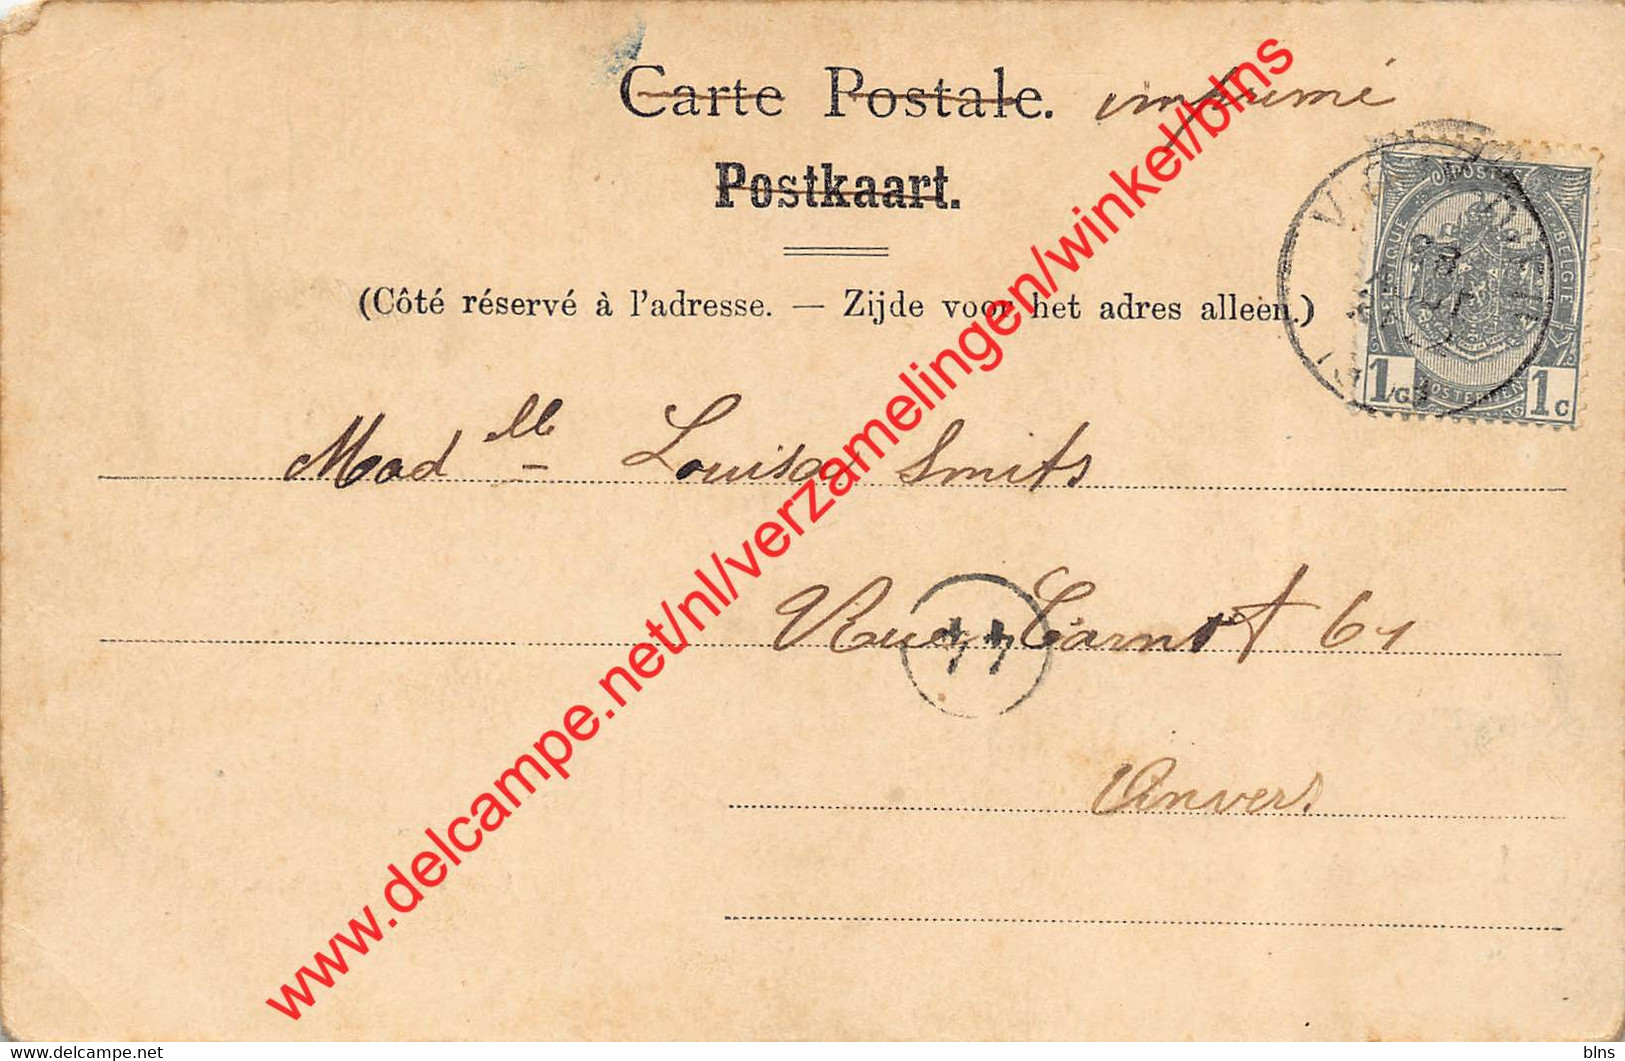 Carte Postale. imprimé
Postkaart.
(Côté réservé à l'adresse. — Zijde voor het adres alleen.)
POSTES
BELGIQUE BELGIË
1 C 1 C
Mad lle Louisa Smits
Rue Carnot 61
Anvers
www.delcampe.net/nl/verzamelingen/winkel/blns
www.delcampe.net
blns